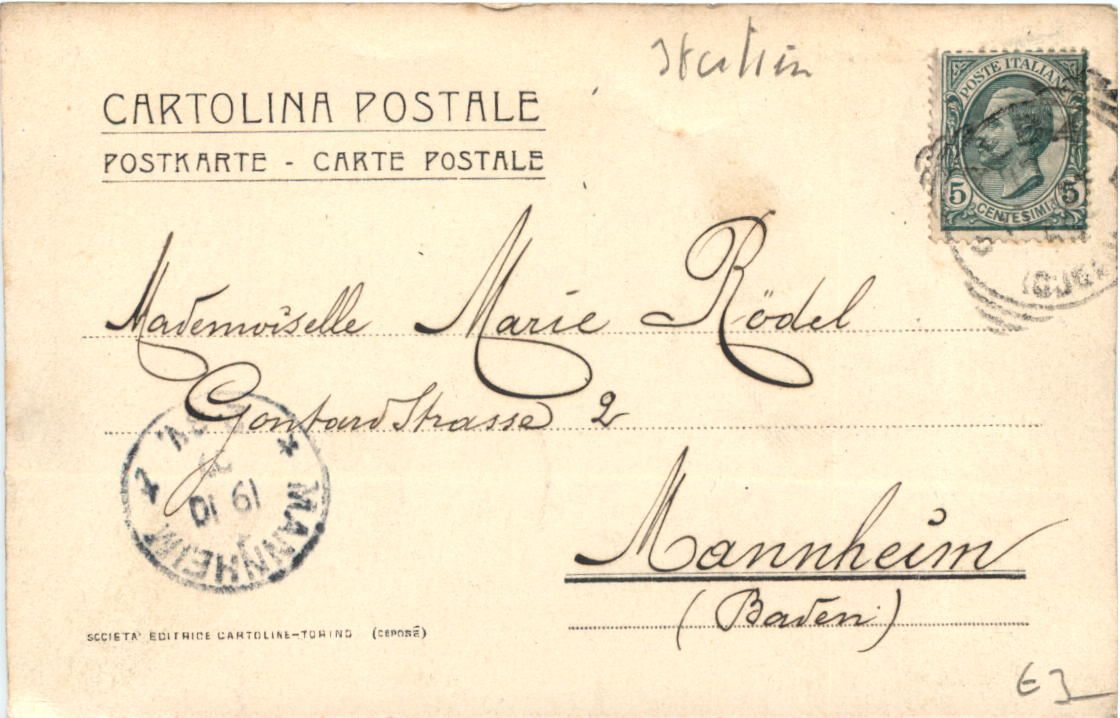 Italien
CARTOLINA POSTALE
POSTKARTE - CARTE POSTALE
POSTE ITALIANE
5 CENTESIMI 5
Mademoiselle Marie Rödel
Gontard Strasse 2
Mannheim
(Baden)
* MANNHEIM *
SOCIETA' EDITRICE CARTOLINE-TORINO (DEPOSÉ)
€3